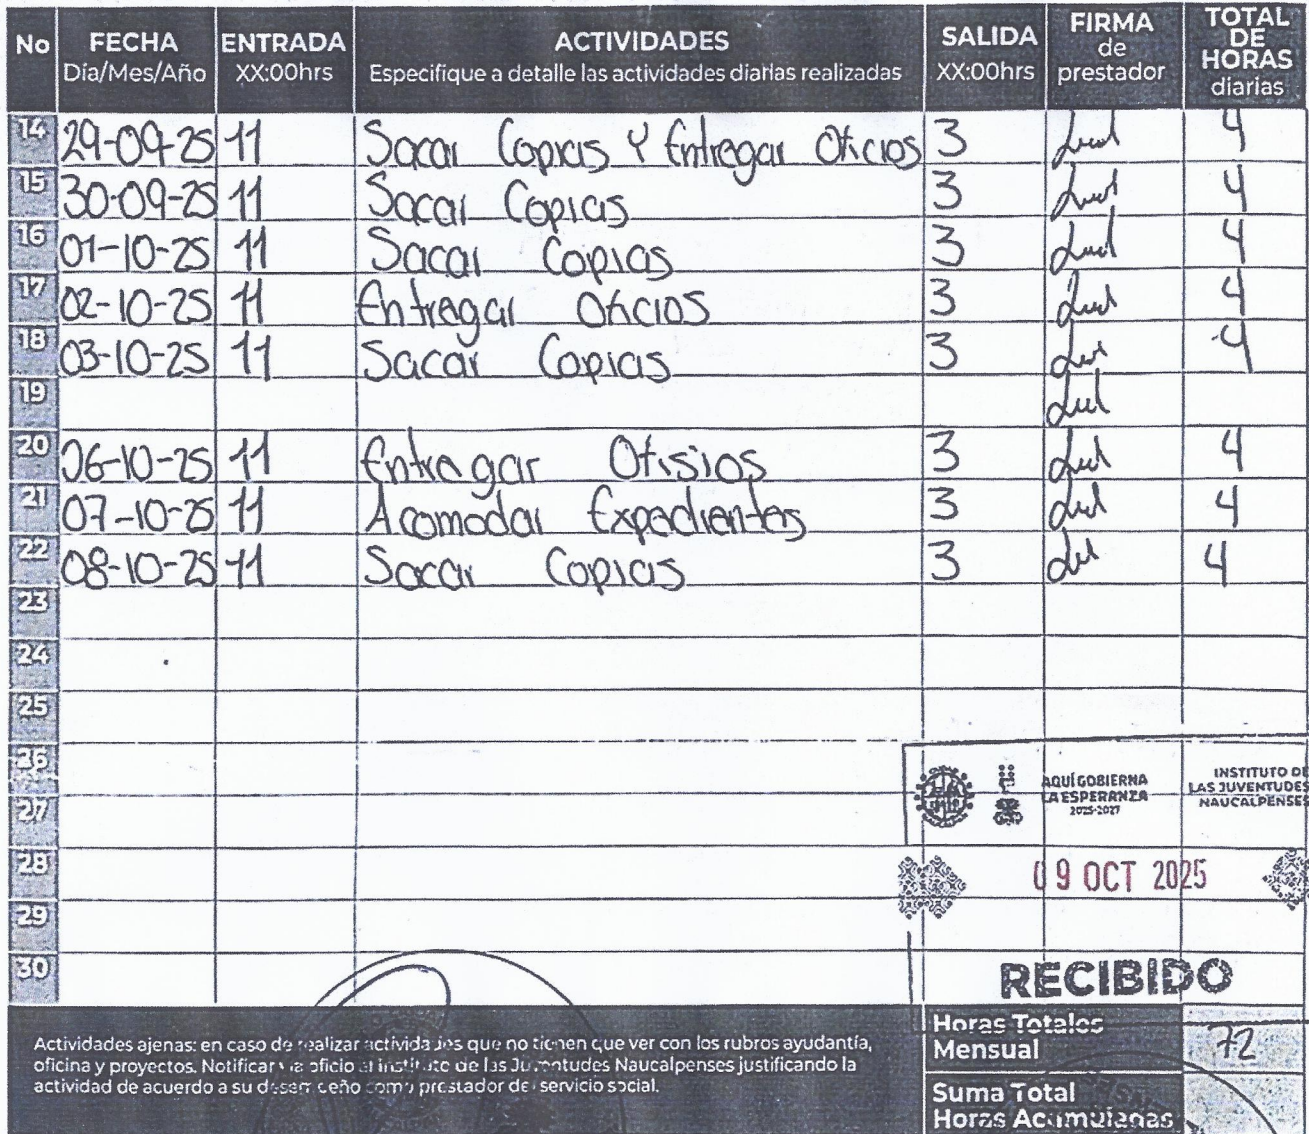 No FECHA Día/Mes/Año ENTRADA XX:00hrs ACTIVIDADES Especifique a detalle las actividades diarias realizadas SALIDA XX:00hrs FIRMA de prestador TOTAL DE HORAS diarias
14 29-09-25 11 Sacar Copias Y Entregar Oficios 3 4
15 30-09-25 11 Sacar Copias 3 4
16 01-10-25 11 Sacar Copias 3 4
17 02-10-25 11 Entregar Oficios 3 4
18 03-10-25 11 Sacar Copias 3 4
19
20 06-10-25 11 Entregar Ofisios 3 4
21 07-10-25 11 Acomodar Expedientes 3 4
22 08-10-25 11 Sacar Copias 3 4
23
24
25
26
27
28
29
30
AQUÍ GOBIERNA
LA ESPERANZA
2025-2027
INSTITUTO DE
LAS JUVENTUDES
NAUCALPENSES
09 OCT 2025
RECIBIDO
Actividades ajenas: en caso de realizar actividades que no tienen que ver con los rubros ayudantía,
oficina y proyectos. Notificar vía oficio al instituto de las Juventudes Naucalpenses justificando la
actividad de acuerdo a su desempeño como prestador de servicio social.
Horas Totales
Mensual 72
Suma Total
Horas Acumuladas